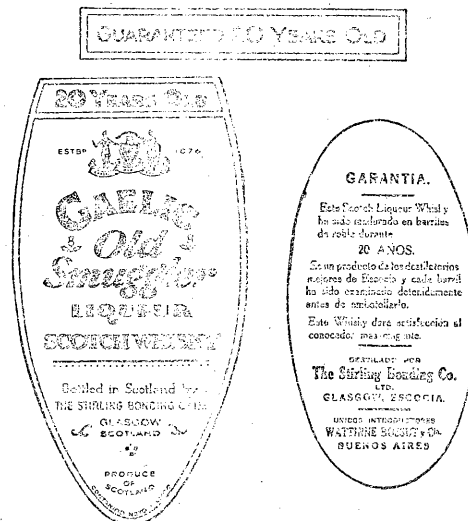 GUARANTEED 20 YEARS OLD
20 YEARS OLD
ESTBD 1876
GAELIC
Old
Smuggler
LIQUEUR
SCOTCH WHISKY
Bottled in Scotland by
THE STIRLING BONDING
GLASGOW
SCOTLAND
PRODUCE
OF
SCOTLAND
GARANTIA.
Este Scotch Liqueur Whisky
ha sido madurado en barriles
de roble durante
20 AÑOS.
Es un producto de los destilatorios
mejores de Escocia y cada barril
ha sido examinado detenidamente
antes de embotellarlo.
Este Whisky dara satisfacción al
conocedor mas exigente.
DESTILADO POR
The Stirling Bonding Co.
LTD.
GLASGOW, ESCOCIA.
UNICOS INTRODUCTORES
WATTINNE BOSSUT y Cia.
BUENOS AIRES